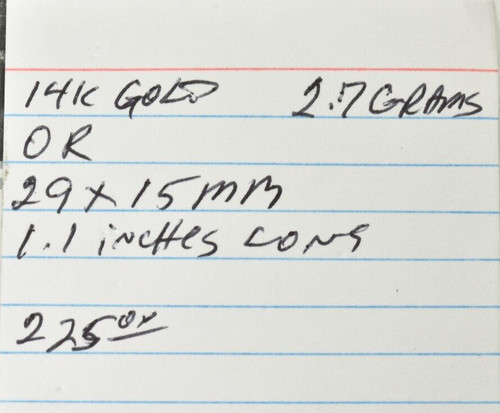 14K GOLD 2.7 GRAMS
OR
29 x 15 mm
1.1 inches LONG
225